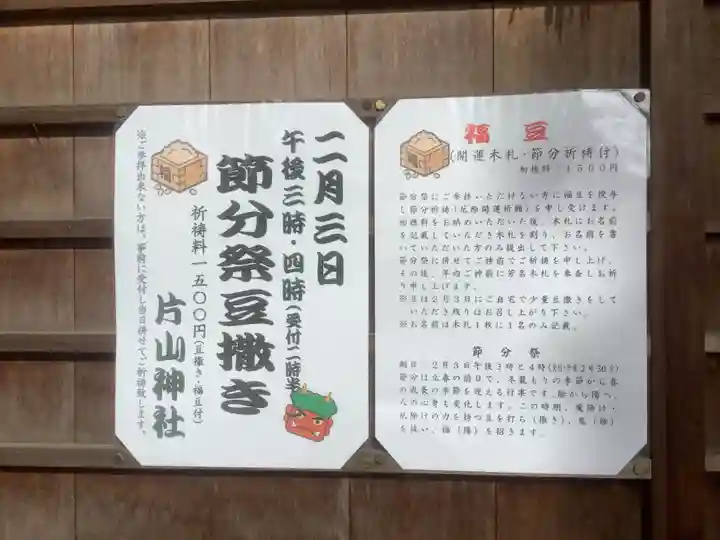 二月三日
午後三時・四時(受付二時半)
節分祭豆撒き
祈祷料一五〇〇円(豆撒き・福豆付)
片山神社
※ご参拝出来ない方は、事前に受付し当日併せてご祈祷致します。
福豆
(開運木札・節分祈祷付)
初穂料 1500円
節分祭にご参拝いただけない方に福豆を授与
し節分祈祷(厄除開運祈願)を申し受けます。
初穂料をお納めいただいた後、木札にお名前
を記載していただき木札を割り、お名前を書
いていただいた方のみ提出して下さい。
節分祭に併せてご神前でご祈祷を申し上げ、
その後、年内ご神前に芳名木札を奉斎しお祈
り申し上げます。
※豆は2月3日にご自宅で少量豆撒きをして
いただき残りはお召し上がり下さい。
※お名前は木札1枚に1名のみ記載。
節分祭
期日 2月3日午後3時と4時(受付午後2時30分)
節分は立春の前日で、冬籠もりの季節から春
の成長の季節を迎える行事です。陰から陽へ、
人の心身も変化します。この時期、魔除け・
厄除けの力を持つ豆を打ち(撒き)、鬼(陰)
を祓い、福(陽)を招きます。